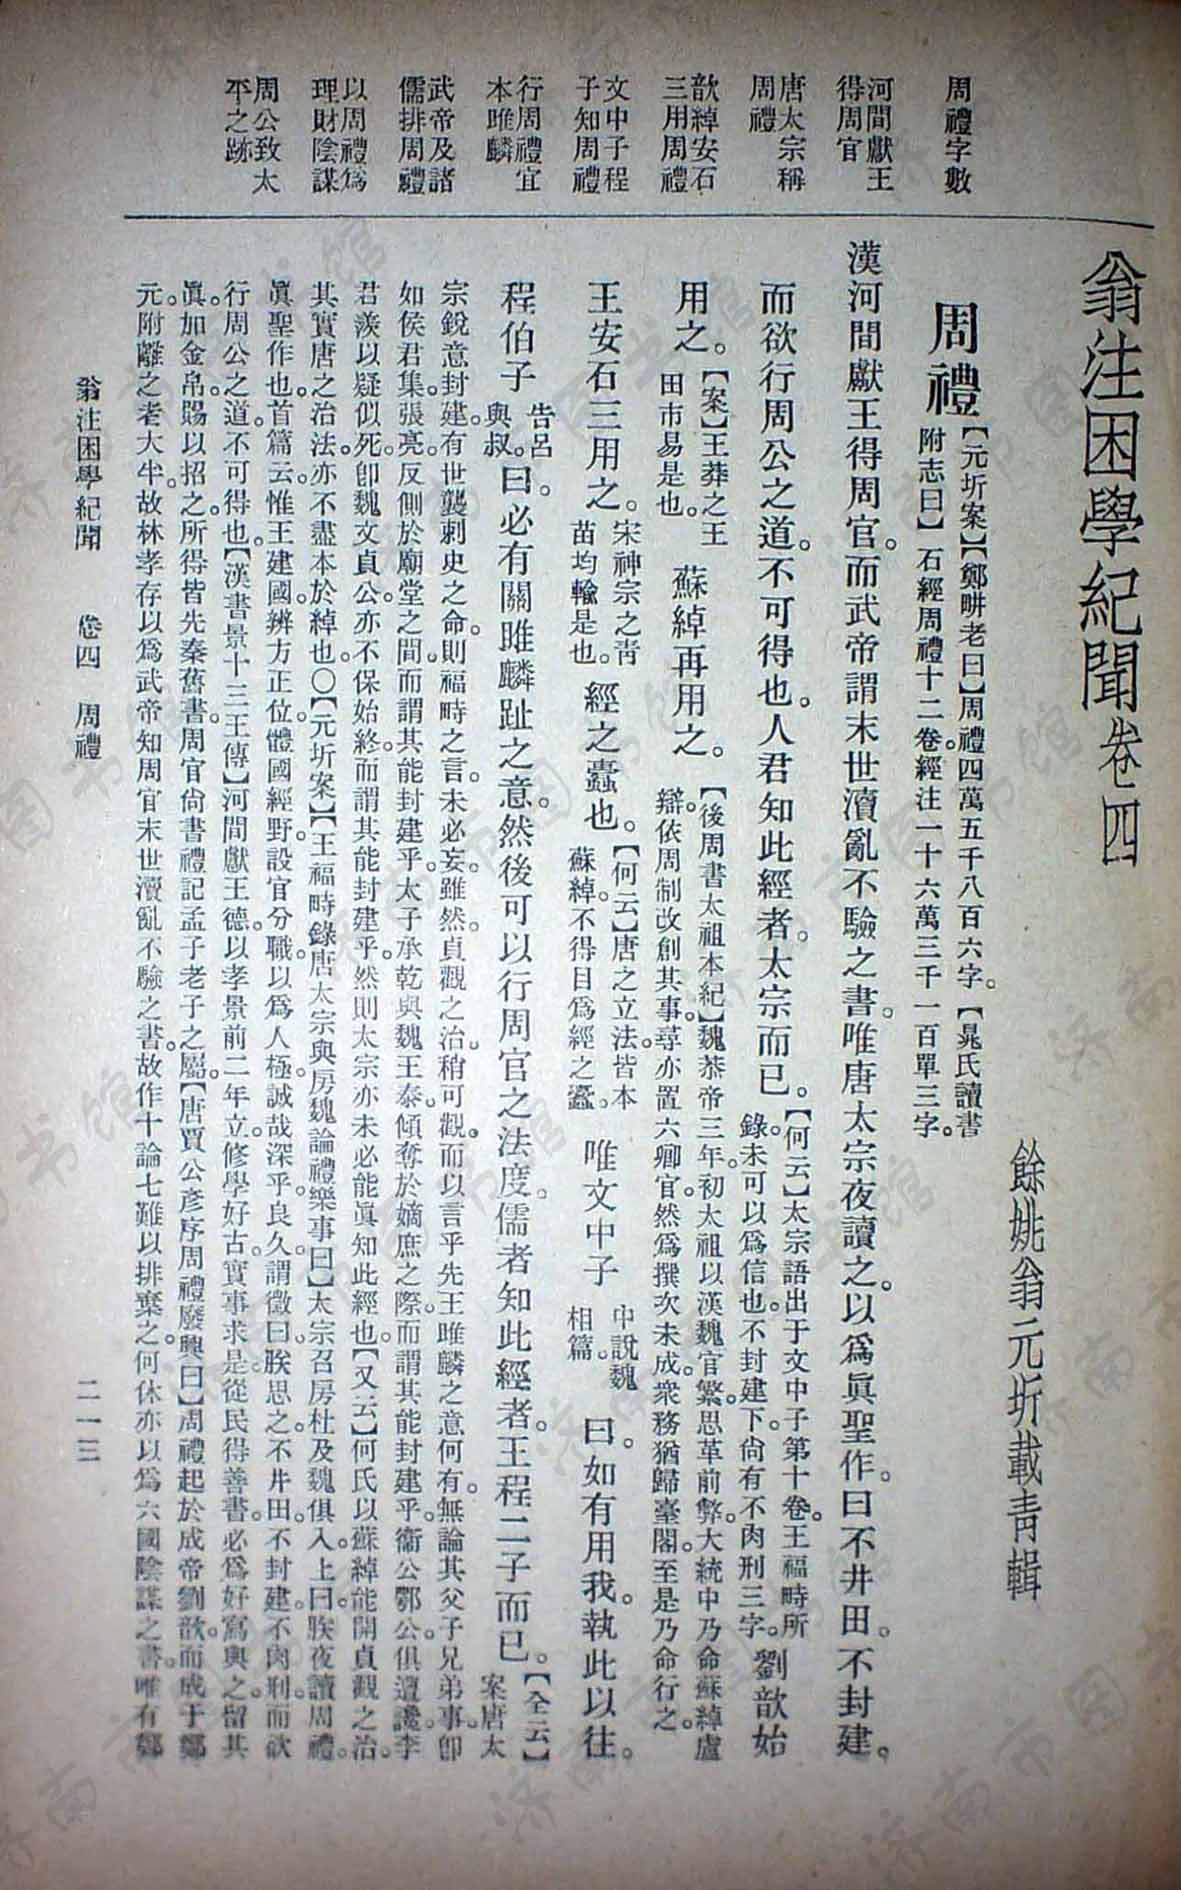 周禮字數
河間獻王
得周官
唐太宗稱
周禮
歆綽安石
三用周禮
文中子程
子知周禮
行周禮宜
本睢麟
武帝及諸
儒排周禮
以周禮爲
理財陰謀
周公致太
平之跡
翁注困學紀聞卷四
餘姚翁元圻載青輯
周禮
【元圻案】【鄭畊老曰】周禮四萬五千八百六字。【晁氏讀書
附志曰】石經周禮十二卷。經注一十六萬三千一百單三字。
漢河間獻王得周官。而武帝謂末世瀆亂不驗之書。唯唐太宗夜讀之。以爲眞聖作。曰不井田。不封建。
而欲行周公之道。不可得也。人君知此經者。太宗而已。
【何云】太宗語出于文中子第十卷。王福畤所
錄。未可以爲信也。不封建下。尙有不肉刑三字。
劉歆始
用之。
【案】王莽之王
田市易是也。
蘇綽再用之。
【後周書太祖本紀】魏恭帝三年。初太祖以漢魏官繁。思革前弊。大統中乃命蘇綽盧
辯。依周制改創其事。尋亦置六卿官。然爲撰次未成。衆務猶歸臺閣。至是乃命行之。
王安石三用之。
宋神宗之靑
苗均輸是也。
經之蠹也。
【何云】唐之立法。皆本
蘇綽。不得目爲經之蠹。
唯文中子
中說魏
相篇。
曰。如有用我。執此以往。
程伯子
告呂
與叔。
曰。必有關睢麟趾之意。然後可以行周官之法度。儒者知此經者。王程二子而已。
【全云】
案唐太
宗銳意封建。有世襲刺史之命。則福畤之言。未必妄。雖然。貞觀之治。稍可觀。而以言乎先王睢麟之意何有。無論其父子兄弟事。卽
如侯君集。張亮。反側於廟堂之間。而謂其能封建乎。太子承乾與魏王泰。傾奪於嫡庶之際。而謂其能封建乎。衞公鄂公。俱遭讒。李
君羨以疑似死。卽魏文貞公。亦不保始終。而謂其能封建乎。然則太宗亦未必能眞知此經也。【又云】何氏以蘇綽能開貞觀之治。
其實唐之治法。亦不盡本於綽也。〇【元圻案】【王福畤錄唐太宗與房魏論禮樂事曰】太宗召房杜及魏俱入。上曰。朕夜讀周禮。
眞聖作也。首篇云。惟王建國。辨方正位。體國經野。設官分職。以爲人極。誠哉深乎。良久。謂徵曰。朕思之。不井田。不封建。不肉刑。而欲
行周公之道。不可得也。【漢書景十三王傳】河間獻王德。以孝景前二年立。修學好古。實事求是。從民得善書。必爲好寫與之。留其
眞。加金帛。賜以招之。所得皆先秦舊書。周官尙書禮記孟子老子之屬。【唐賈公彥序周禮廢興曰】周禮起於成帝劉歆。而成于鄭
元。附離之者大半。故林孝存以爲武帝知周官末世瀆亂不驗之書。故作十論七難以排棄之。何休亦以爲六國陰謀之書。唯有鄭
翁注困學紀聞 卷四 周禮
二一三